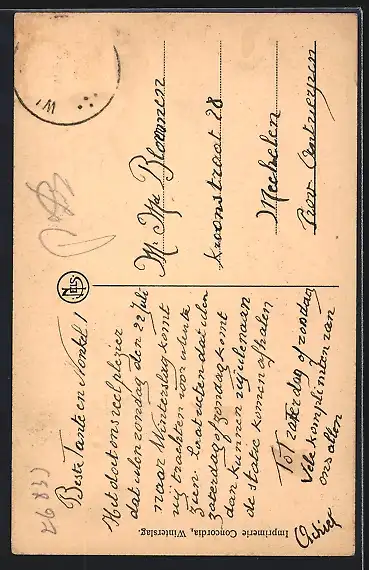 Beste Tante en Nonkel!
Het doet ons veel plezier
dat ulen zondag den 22 juli
naar Winterslag komt
wij trachten voor
zien laat weten dat ulen
zaterdag of zondag komt
dan kunnen wij ulen aan
de statie komen afhalen
Tot zaterdag of zondag
Vele komplimenten van
ons allen
M. Mr Bloemen
Kroonstraat 28
Mechelen
Prov Antwerpen
NELS
Imprimerie Concordia, Winterslag.
WI